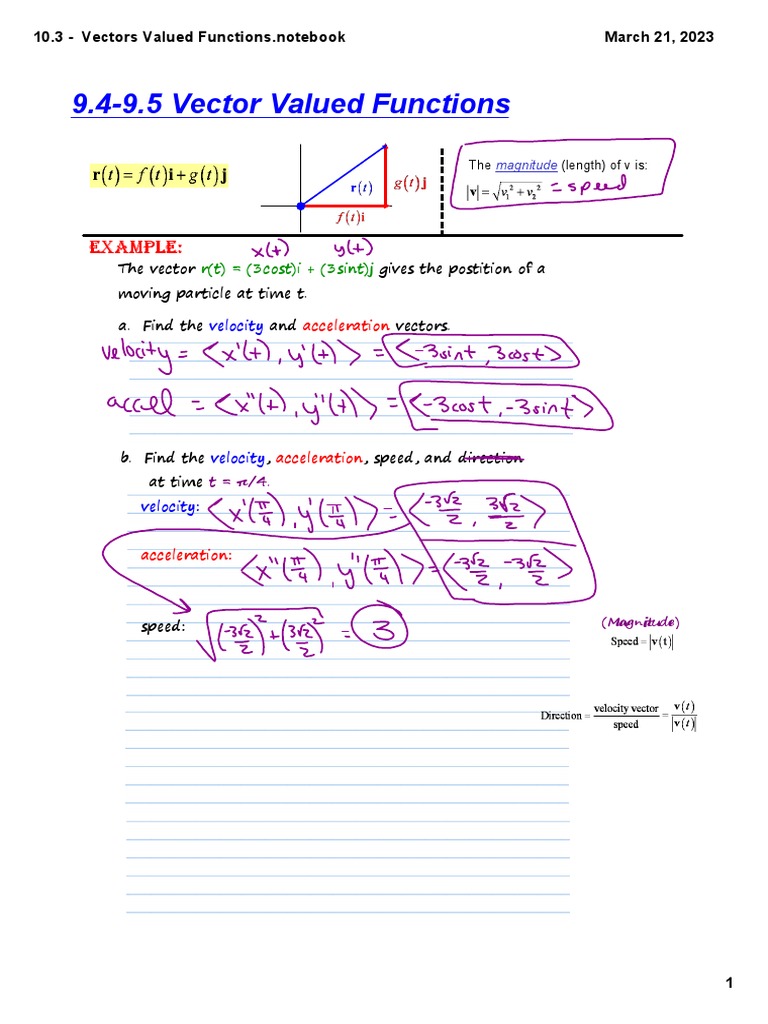 10.3 -  Vectors Valued Functions.notebook
March 21, 2023
9.4-9.5 Vector Valued Functions
r(t) = f(t)i + g(t)j
r(t)
g(t)j
f(t)i
The magnitude (length) of v is:
|v| = √(v₁² + v₂²) = speed
EXAMPLE:
x(t) y(t)
The vector r(t) = (3cost)i + (3sint)j gives the postition of a
moving particle at time t.
a. Find the velocity and acceleration vectors.
velocity = <x'(t), y'(t)> = <-3sint, 3cost>
accel = <x''(t), y''(t)> = <-3cost, -3sint>
b. Find the velocity, acceleration, speed, and direction
at time t = π/4.
velocity: <x'(π/4), y'(π/4)> = <-3√2/2, 3√2/2>
acceleration: <x''(π/4), y''(π/4)> = <-3√2/2, -3√2/2>
speed: √((-3√2/2)² + (3√2/2)²) = 3
(Magnitude)
Speed = |v(t)|
Direction = velocity vector/speed = v(t)/|v(t)|
1